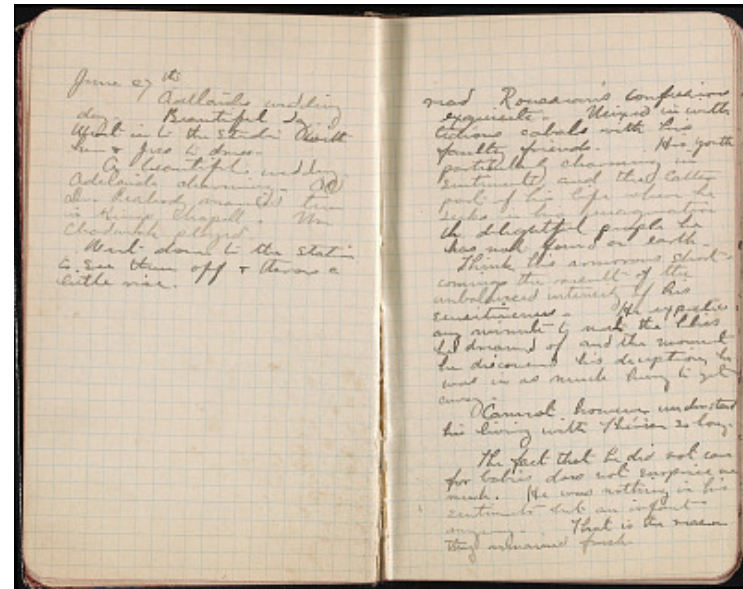 June 27th
Adelaide's wedding
day. Beautiful day
Went in to the Studio with
him & Jess to dress.
A beautiful wedding
Adelaide charming. Old
Dr. Peabody married them
in Kings Chapell. Mr
Chadwick played.
Went down to the station
to see them off & throw a
little rice.
read Rousseau's Confessions
exquisite. Mixed in with
tedious cabals with his
faulty friends. His youth
particularly charming in
sentiments and the latter
part of his life where he
seeks in his imagination
the delightful people he
has not found on earth.
Think his amorous short-
comings the result of the
unbalanced intensity of his
sensitiveness. He expected
any minute to meet the
he dreamed of and the moment
he discovered his deception, he
was in as much hurry to get
away.
Cannot however understand
his living with Thérèse so long.
The fact that he did not care
for babies does not surprise me
much. He was nothing in his
sentiments but an infant
anyway. That is the reason
they remained fresh